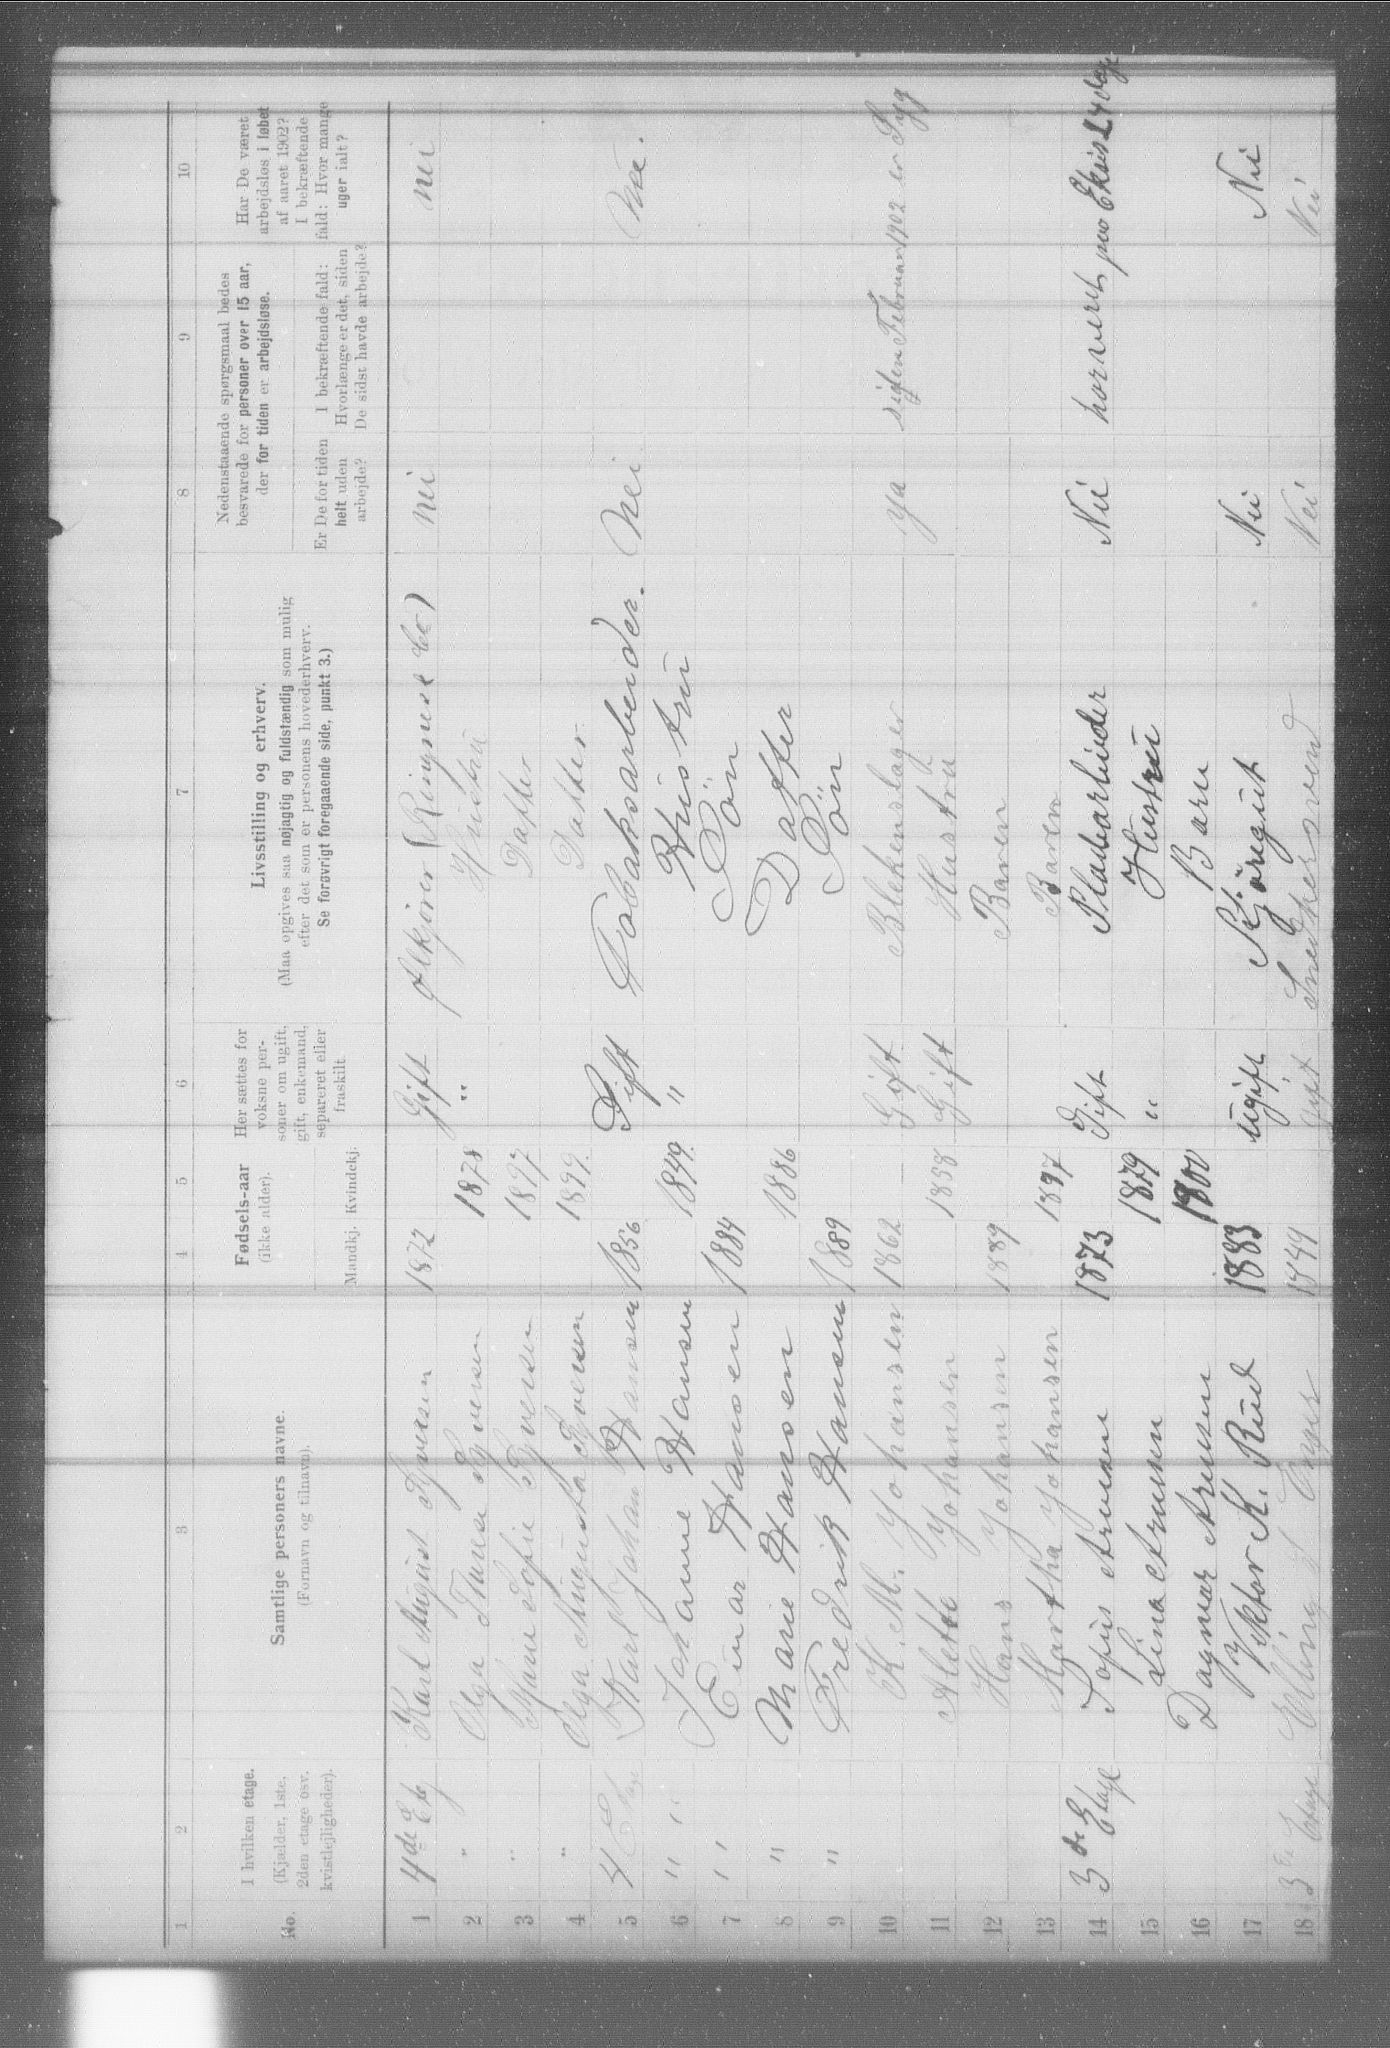 1 2 3 4 5 6 7 8 9 10
No.
I hvilken etage.
(Kjælder, 1ste,
2den etage osv.
kvistlejligheder).
Samtlige personers navne.
(Fornavn og tilnavn).
Fødsels-aar
(ikke alder).
Mandkj. Kvindekj.
Her sættes for
voksne per-
soner om ugift,
gift, enkemand,
separeret eller
fraskilt
Livsstilling og erhverv.
(Maa opgives saa nøjagtig og fuldstændig som mulig
efter det som er personens hovederhverv.
Se forøvrigt foregaaende side, punkt 3.)
Nedenstaaende spørgsmaal bedes
besvarede for personer over 15 aar,
der for tiden er arbejdsløse.
Er De for tiden
helt uden
arbejde?
I bekræftende fald:
Hvorlænge er det, siden
De sidst havde arbejde?
Har De været
arbejdsløs i løbet
af aaret 1902?
I bekræftende
fald: Hvor mange
uger ialt?
1 4de Etg Karl August Iversen 1872 Gift Ølkjører (Ringnes nei nei
2 " Olga Iversen 1878 " Hustru
3 " Sofie Iversen 1897 Datter
4 " Olga Augusta Iversen 1899. Datter
5 4 Etag Karl Johan Hansen 1856 Gift Tobaksarbeider. Nei
6 " " Johanne Hansen 1849. " Hustru
7 " Einar Hansen 1884 Sön
8 " Marie Hansen 1886 Datter
9 " Fredrik Hansen 1889 Sön
10 K. M. Yohansen 1862 Gift Blekenslager ya siden Februar 1902 er Syg
11 Alette Yohansen 1858 Gift Hustru
12 Hans Yohansen 1889 Baren
13 Martha Yohansen 1897 Baren
14 3de Etage Sofus Arnesen 1873 Gift Pladsarbeider Nei
15 Lina Arnesen 1879 " Hustru
16 Dagmar Arnesen 1900 Barn
17 Viktor K. Rud 1883 ugift Kjöregut Nei Nei
18 3 Etage 1849 gift Snedkersvend Nei Nei